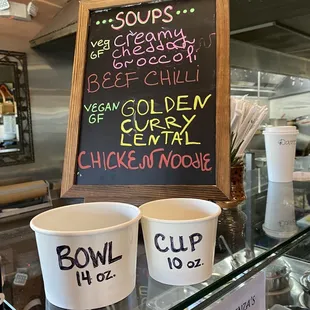 ...SOUPS...
veg creamy
GF cheddar
broccoli
BEEF CHILLI
VEGAN GOLDEN
GF CURRY
LENTAL
CHICKEN NOODLE
BOWL
14 oz.
CUP
10 oz.